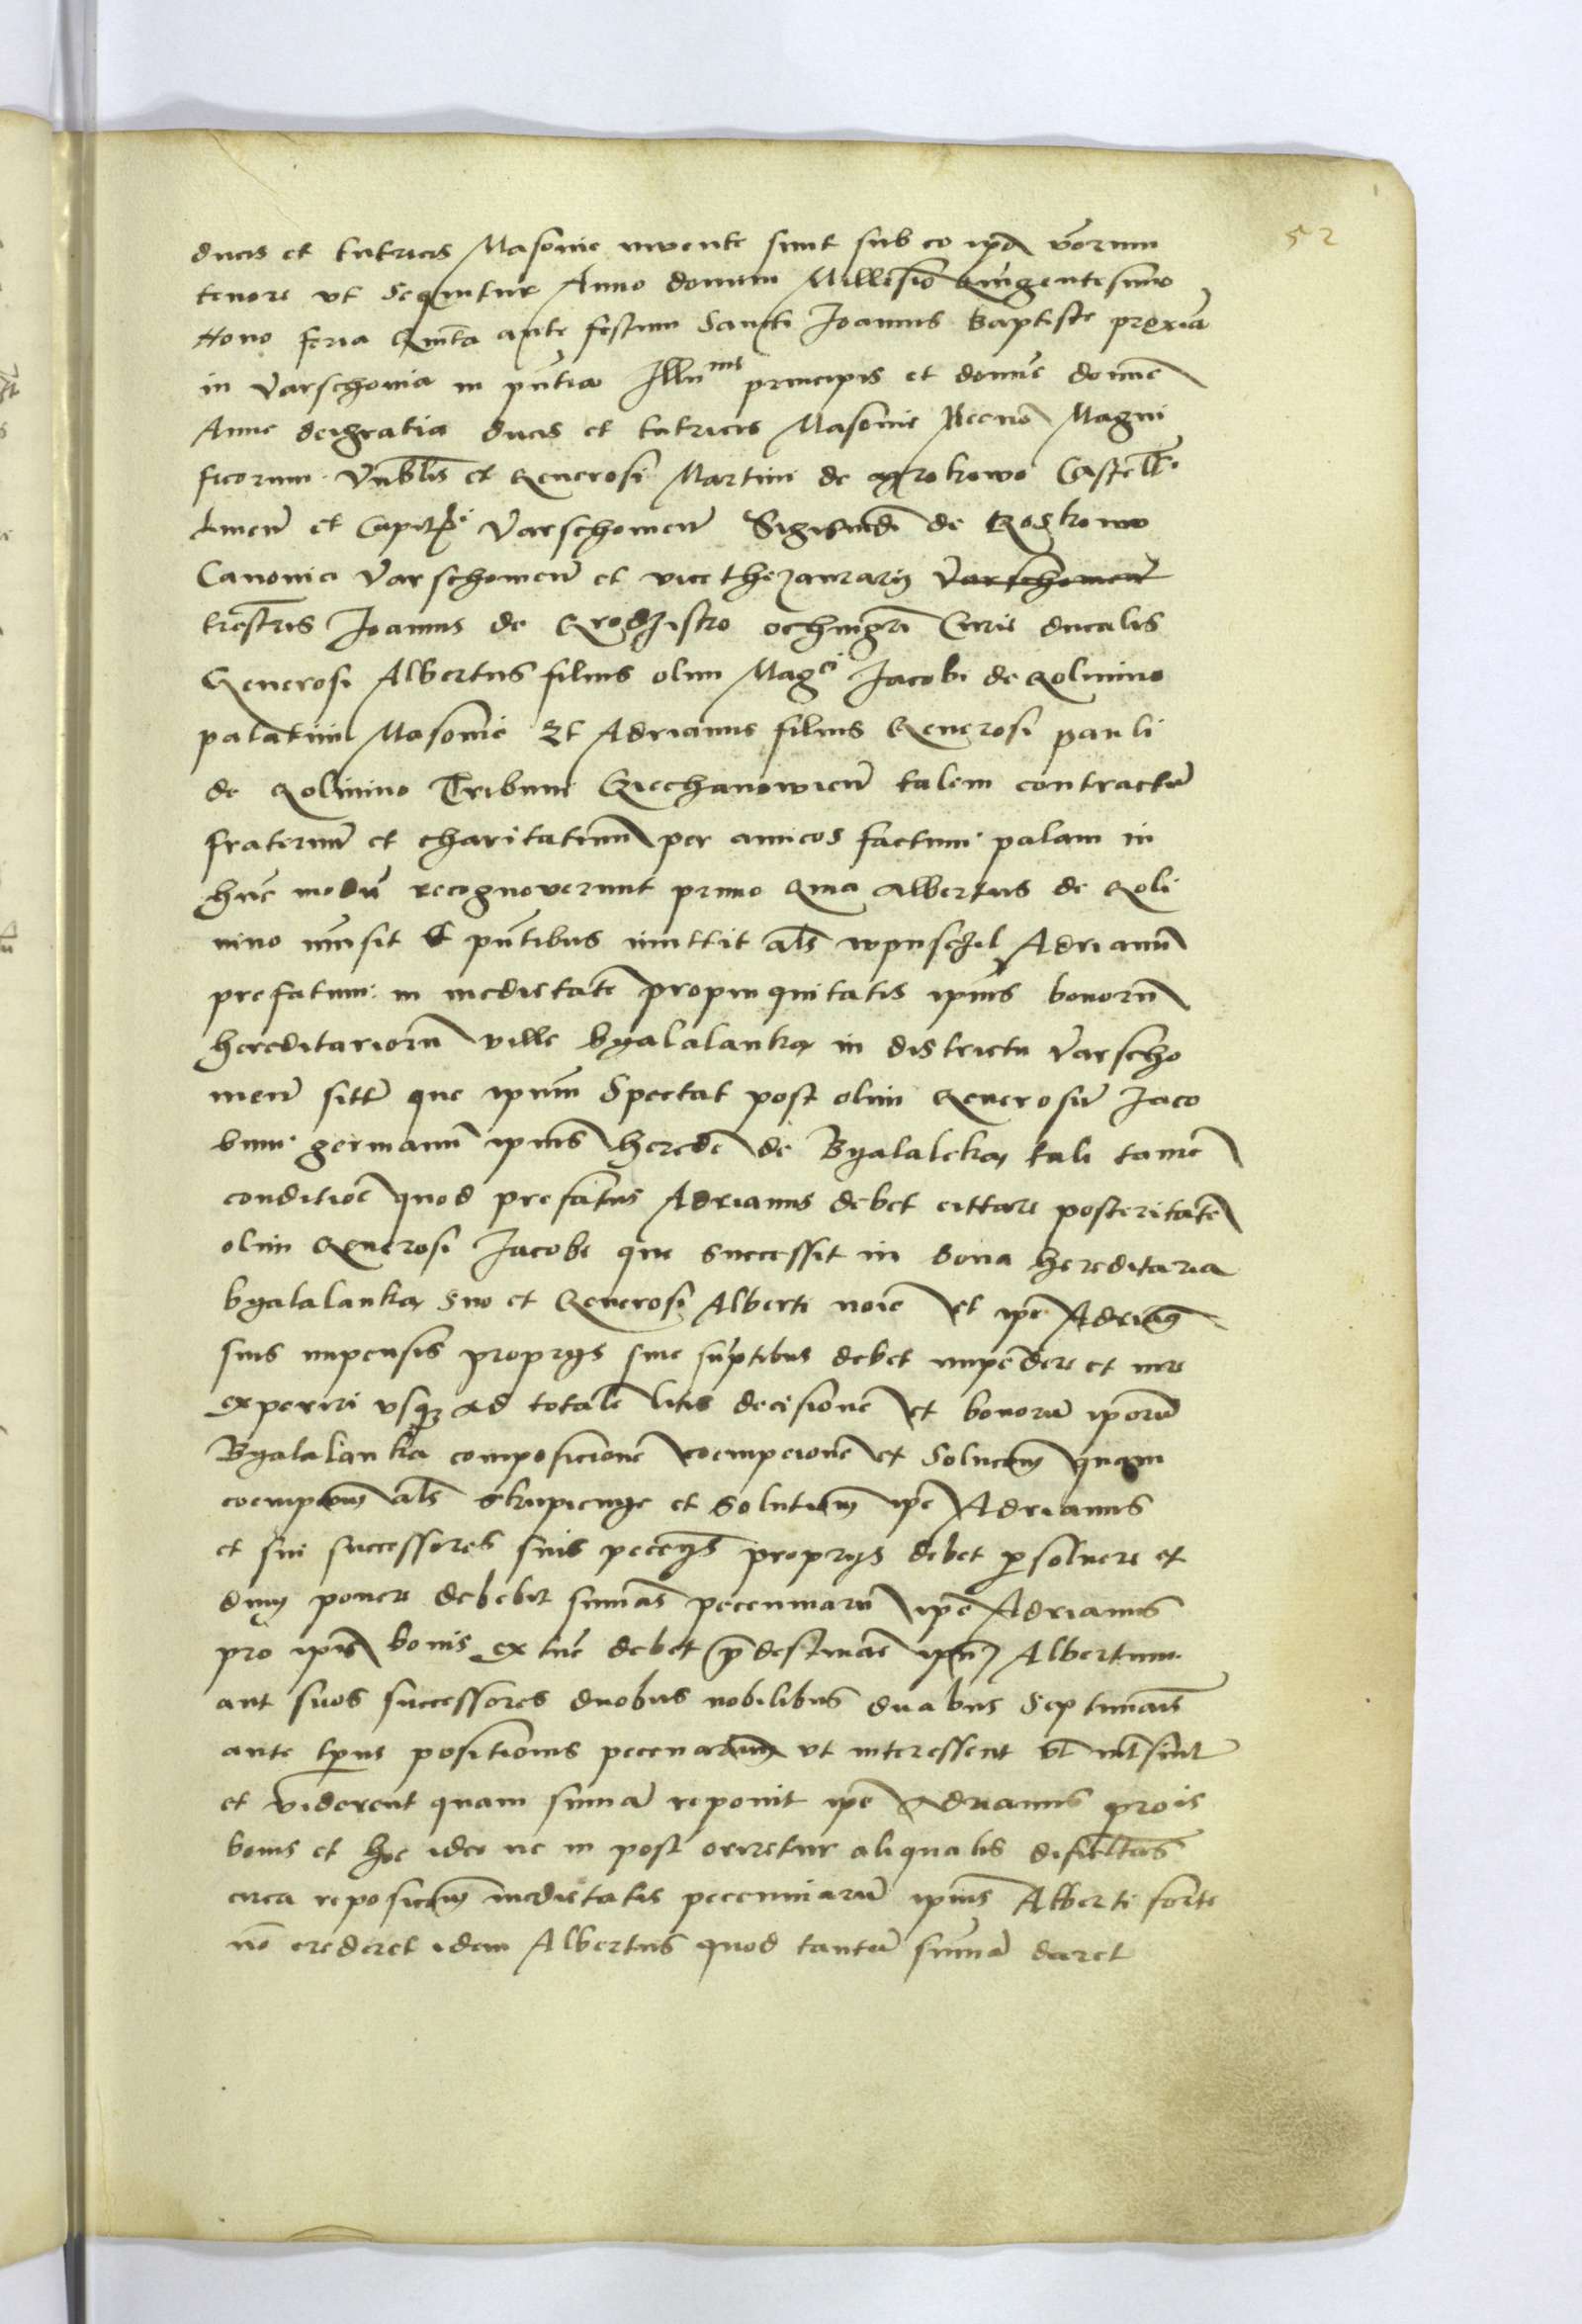 52
ducis et tutricis Masovie invente sunt sub eo ipo verorum
tenore ut Sequitur Anno domini Millesio Quingentesimo
Nono feria Quinta ante festum Sancti Joannis Baptiste proxia
in Varschovia in pntia Illu^mis principis et domne domne
Anne dei gratia ducis et tutricis Masovie Necno Magni
ficorum Vnblis et Generosi Martini de Castell
et Capit Varschowien Sigismdi de Koskowo
Canonici Varschowien et vicethezaurarij Varschowien
trestris Joannis de Grodzisko ochmgri Curie ducalis
Generosi Albertus filius olim Mag^ci Jacobi de Golinino
palatini Masovie Et Adrianus filius Generosi pauli
de Golinino Tribuni Ciechanowien talem contractu
fraternu et charitatinu per amicos factum palam in
hunc modu recognoverunt primo Qma Albertus de Goli
nino imisit et pntibus imittit als wpuscził Adrianu
prefatum in medietate propinquitatis ipius bonoru
hereditarioru ville byalalanka in districtu Varscho
wien sitte que ipum Spectat post olim Generosu Jaco
bum germanu ipius herede de Byalaleka tali tame
conditioe quod prefatus Adrianus debet cittare posteritate
olim Generosi Jacobi que successit in bona hereditaria
byalalanka suo et Generosi Alberti noie et ipe Adrianus
suis impensis proprijs sive suptibus debet impedere et iure
experiri usque ad totale litis decisione et bonoru iporu
Byalalanka composicione coempcione et Solucom quam
coempcom als skupienye et Solutiom ipe Adrianus
et sui successores suis pecenijs proprijs debet psolvere et
dum ponere debebit sumas pecenniaru ipe Adrianus
pro ipis bonis ex tuc debet pdestinare ipu Albertum
aut suos successores duobus nobilibus duabus Septimais
ante tpus positionis pecenarum ut interessent
et viderent quam suma reponit ipe Adrianus pro is
bonis et hoc ideo ne in post oriretur aliqualis dificltas
circa reposicom medietatis pecenniaru ipius Alberti forte
no crederet idem Albertus quod tantu suma daret